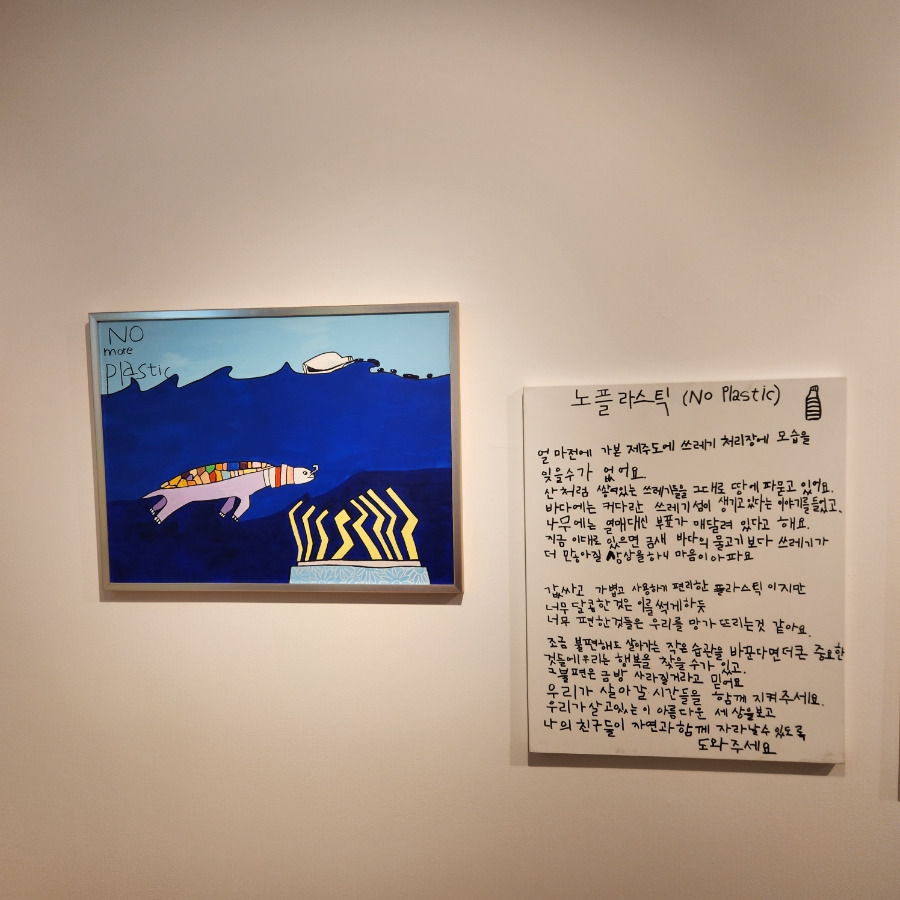 NO
more
plastic
노플라스틱 (No Plastic)
얼마전에 가본 제주도에 쓰레기 처리장에 모습을
잊을수가 없어요.
산처럼 쌓여있는 쓰레기들을 그대로 땅에 파묻고 있어요.
바다에는 커다란 쓰레기섬이 생기고있다는 이야기를들었고,
나무에는 열매대신 부표가 매달려 있다고 해요.
지금 이대로 있으면 금새 바다의 물고기보다 쓰레기가
더 많아질 상상을하니 마음이아파요
값싸고 가볍고 사용하기 편리한 플라스틱 이지만
너무달콤한것은 이를 썩게하듯
너무 편한것들은 우리를 망가뜨리는것 같아요.
조금 불편해도 살아가는 작은 습관을 바꾼다면더큰 중요한
것들에우리는 행복을 찾을수가 있고.
그불편은 금방 사라질거라고 믿어요
우리가 살아갈 시간들을 함께 지켜주세요.
우리가살고있는 이 아름다운 세상을보고
나의 친구들이 자연과함께 자라날수 있도록
도와주세요